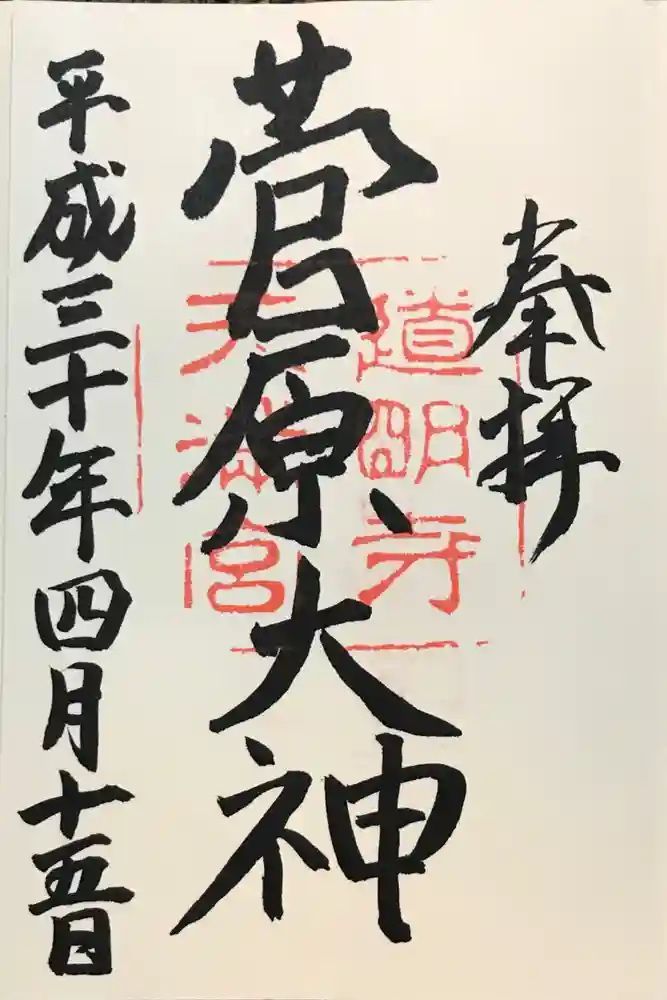 奉拝
道明寺
天満宮
菅原大神
平成三十年四月十五日